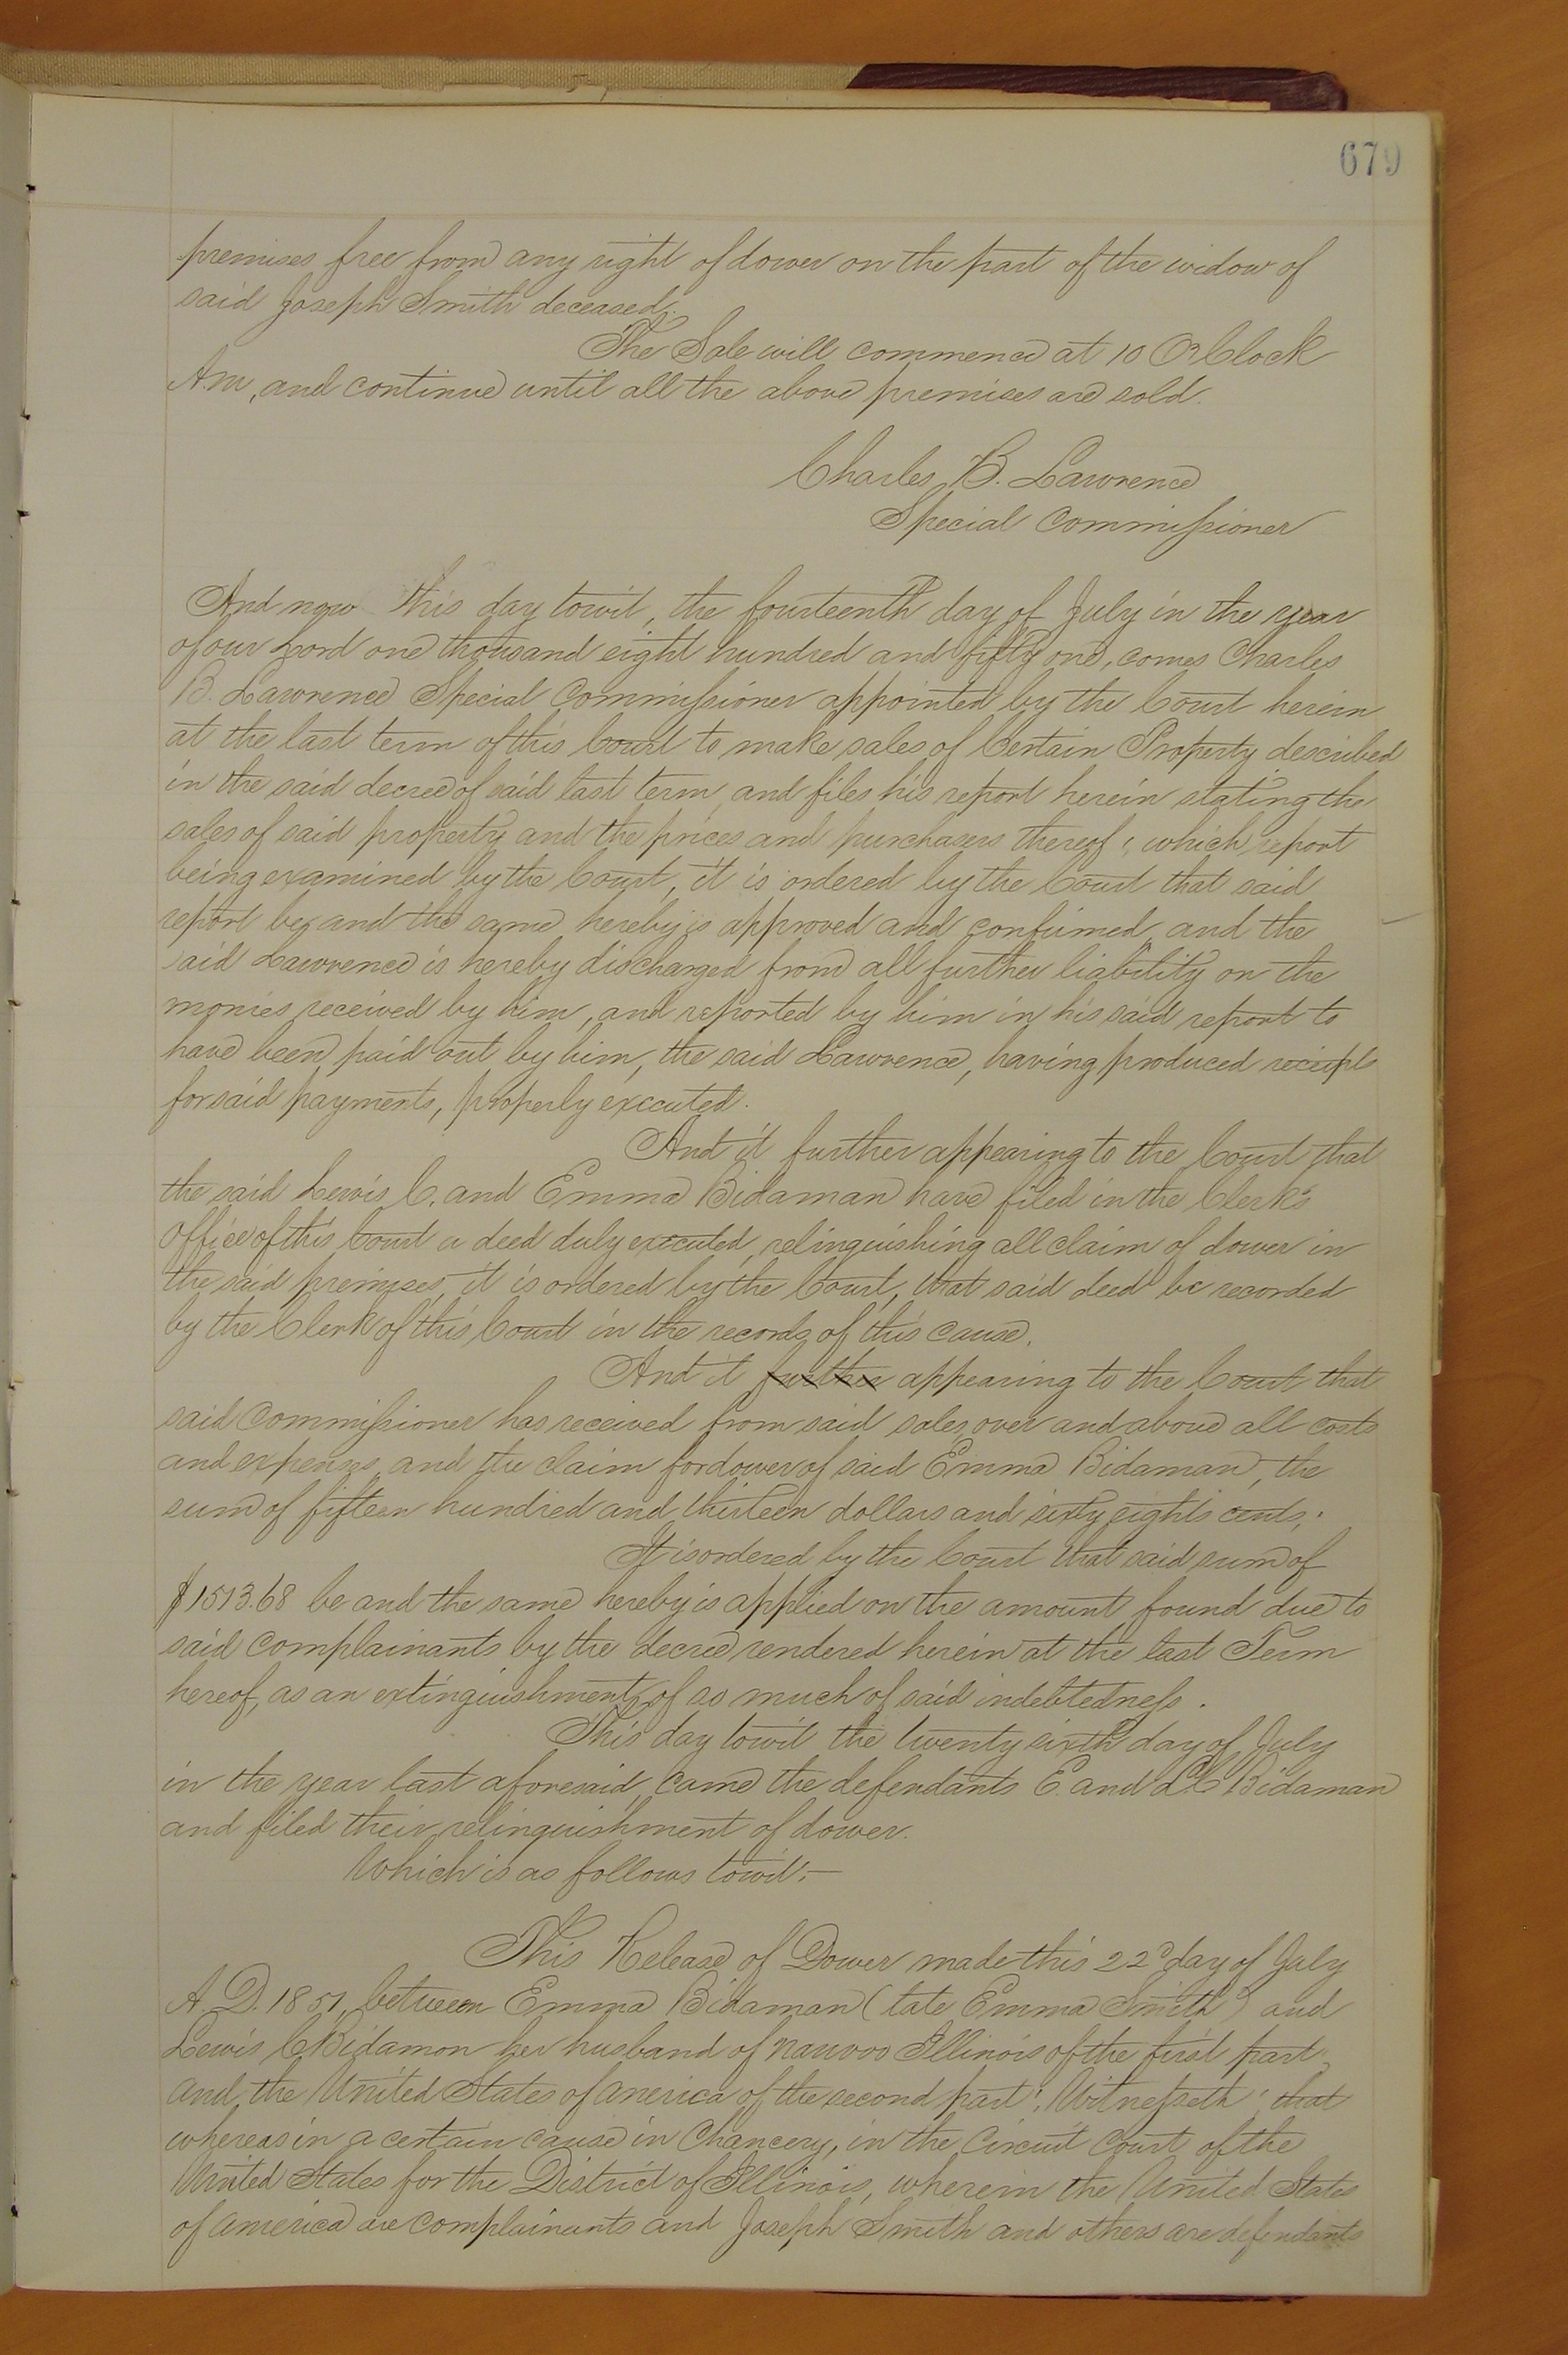 679
premises free from any right of dower on the part of the widow of
said Joseph Smith deceased.
The Sale will commence at 10 O'Clock
A.M, and continue until all the above premises are sold.
Charles B. Lawrence
Special Commissioner
And now this day towit, the fourteenth day of July in the year
of our Lord one thousand eight hundred and fifty one, comes Charles
B. Lawrence Special Commissioner appointed by the Court herein
at the last term of this Court to make sales of Certain Property described
in the said decree of said last term and files his report herein stating the
sales of said property and the prices and purchasers thereof; which report
being examined by the Court, it is ordered by the Court that said
report be, and the same hereby is approved and confirmed, and the
said Lawrence is hereby discharged from all further liability on the
monies received by him, and reported by him in his said report to
have been paid out by him, the said Lawrence, having produced receipts
for said payments, properly executed.
And it further appearing to the Court that
the said Lewis C. and Emma Bidaman have filed in the Clerk's
office of this Court a deed duly executed, relinquishing all claim of dower in
the said premises, it is ordered by the Court, that said deed be recorded
by the Clerk of this Court in the records of this cause.
And it further appearing to the Court that
said Commissioner has received from said sales, over and above all costs
and expenses and the claim for dower of said Emma Bidaman, the
sum of fifteen hundred and thirteen dollars and sixty eights cents;
It is ordered by the Court that said sum of
$1513.68 be and the same hereby is applied on the amount found due to
said complainants by the decree rendered herein at the last Term
hereof, as an extinguishment of so much of said indebtedness.
This day towit the twenty sixth day of July
in the year last aforesaid, came the defendants E. and L.C. Bidaman
and filed their relinquishment of dower.
Which is as follows towit:—
This Release of Dower made this 22d day of July
A.D. 1851, between Emma Bidaman (late Emma Smith) and
Lewis C Bidamon her husband of Nauvoo Illinois of the first part,
and the United States of America of the second part; Witnesseth; that
whereas in a certain cause in Chancery, in the Circuit Court of the
United States for the District of Illinois, wherein the United States
of America are complainants and Joseph Smith and others are defendants